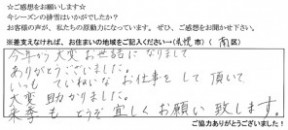 ☆ご感想をお願いします☆
今シーズンの排雪はいかがでしたか？
お客様の声が、私たちの原動力になっています。ぜひ、ご感想をお聞かせ下さい。
※差支えなければ、お住まいの地域をご記入ください→(札幌市)(南区)
今年から大変お世話になりまして
ありがとうございました。
いつも ていねいな お仕事を して 頂いて
大変 助かりました。
来季も どうぞ 宜しく お願い 致します。
ご協力ありがとうございました！